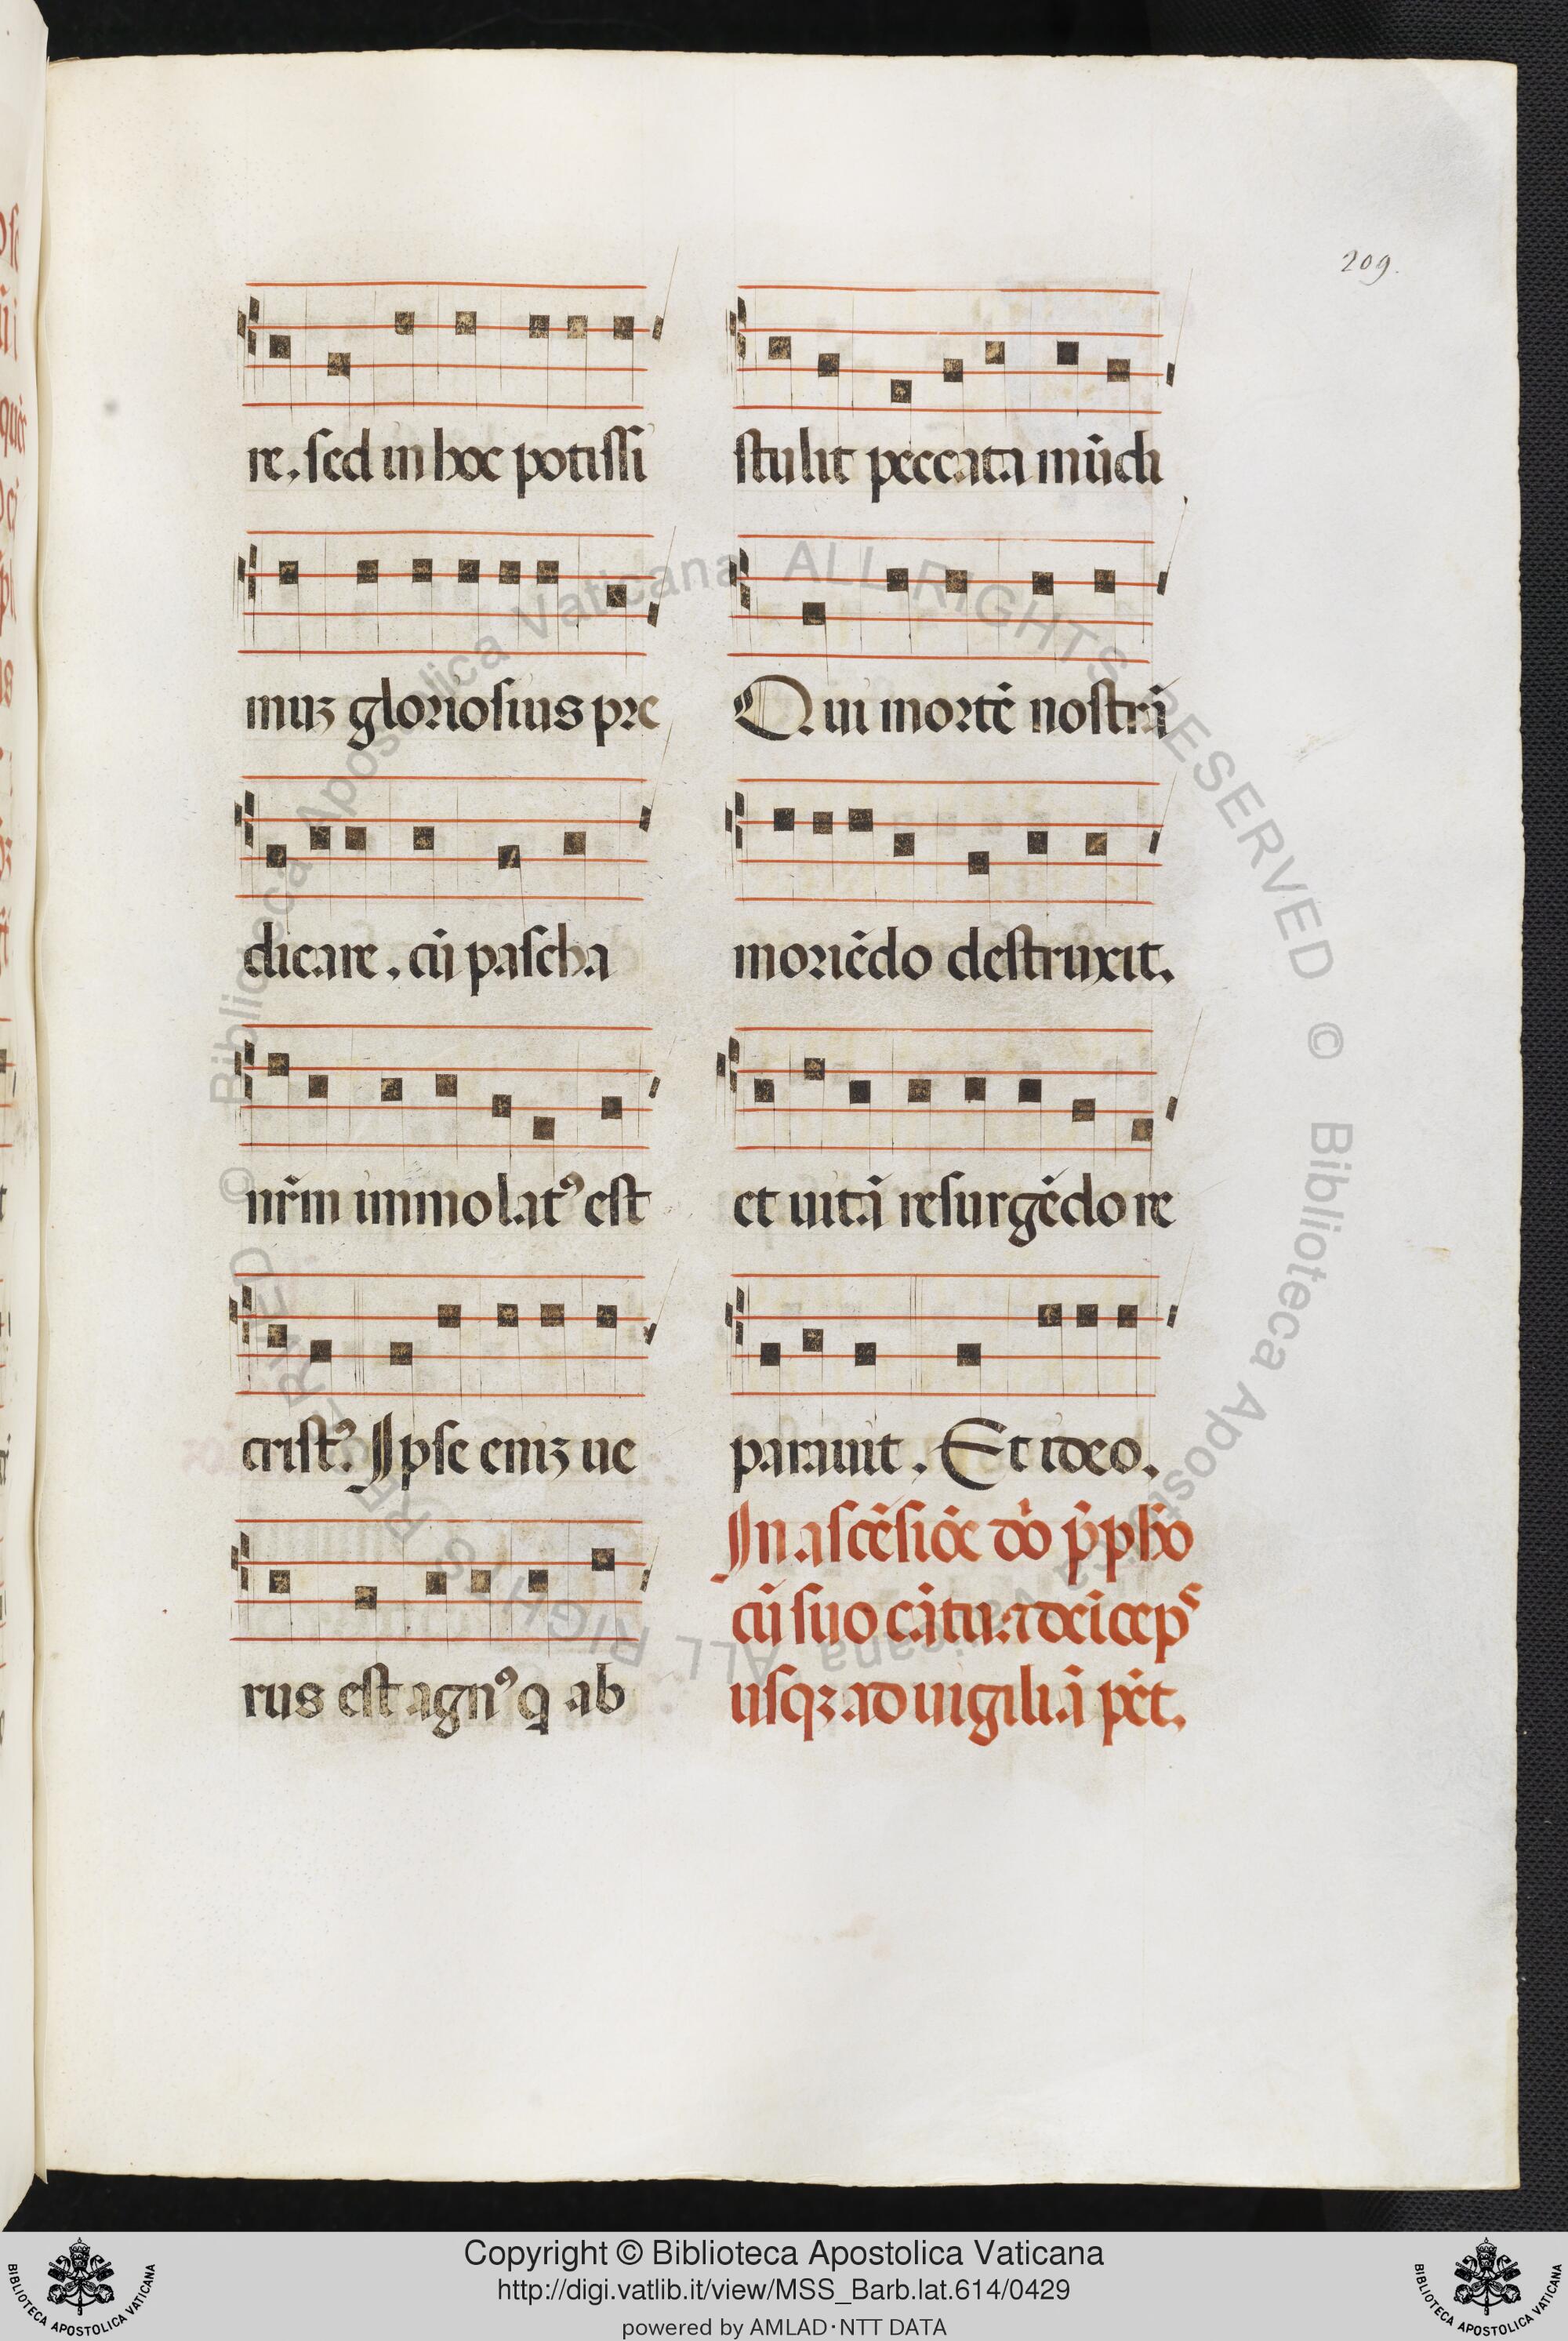 209.
re, sed in hoc potissi
muꝫ gloriosius pre
dicare, cū pascha
nr̄m immolatꝰ est
cristꝰ. Ipse eniꝫ ue
rus est agnꝰ q̣ ab
stulit peccata mūdi
Qui mortē nostrā
moriēdo destruxit,
et uitā resurgēdo re
parauit, Et ideo,
In ascēsiōe
cū suo cātu
usqꝫ ad uigiliā pēt.
© Biblioteca Apostolica Vaticana ALL RIGHTS RESERVED © Biblioteca Apostolica Vaticana ALL RIGHTS RESERVED
Copyright © Biblioteca Apostolica Vaticana
http://digi.vatlib.it/view/MSS_Barb.lat.614/0429
powered by AMLAD·NTT DATA
BIBLIOTECA APOSTOLICA VATICANA
BIBLIOTECA APOSTOLICA VATICANA